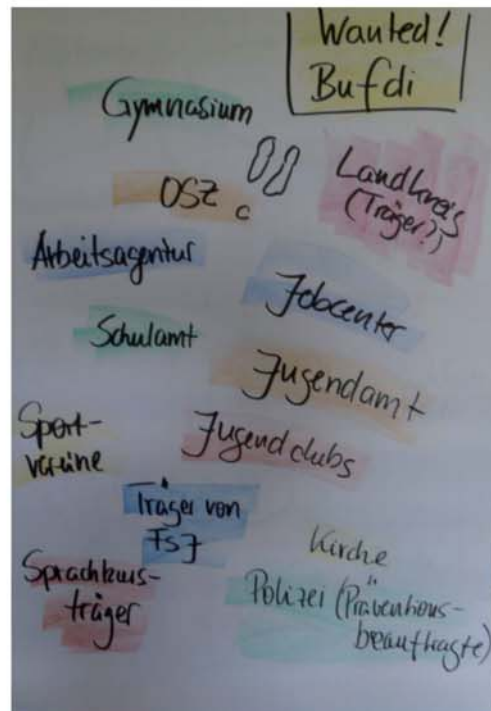 Wanted!
Bufdi
Gymnasium
OSZ
Landkreis
(Träger?)
Arbeitsagentur
Jobcenter
Schulamt
Jugendamt
Sport-
vereine
Jugendclubs
Träger von
FSJ
Kirche
Sprachkurs-
träger
Polizei (Präventions-
beauftragte)